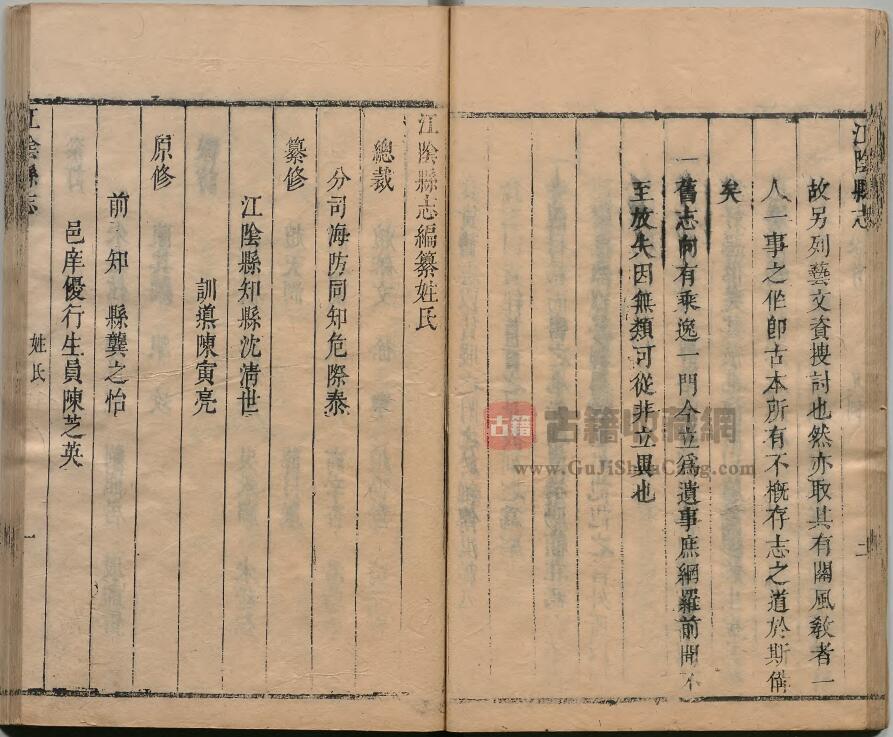 江陰縣志
二
故另列藝文資搜討也然亦取其有關風敎者一
人一事之作卽古本所有不槪存志之道於斯備
矣
一舊志向有乘逸一門今立爲遺事庶網羅前聞不
至放失因無類可從非立異也
江陰縣志編纂姓氏
總裁
分司海防同知危際泰
纂修
江陰縣知縣沈淸世
訓導陳寅亮
原修
前知縣龔之怡
邑庠優行生員陳芝英
江陰縣志
姓氏
一
古籍
古籍收藏網
www.GuJiShouCang.com